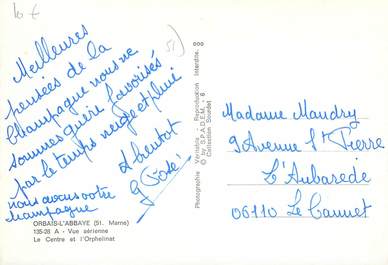 10 €
51
Meilleures
pensées de la
Champagne nous ne
sommes guère favorisés
par le temps neige et pluie
A bientôt
nous avons votre
champagne
ORBAIS-L'ABBAYE (51. Marne)
135-28 A - Vue aérienne
Le Centre et l'Orphelinat
Photographie Véritable - Reproduction Interdite.
© by S.P.A.D.E.M. - 6
Collection Soudet
Madame Maudry
9 Avenue St Pierre
L'Aubarède
06110 Le Cannet